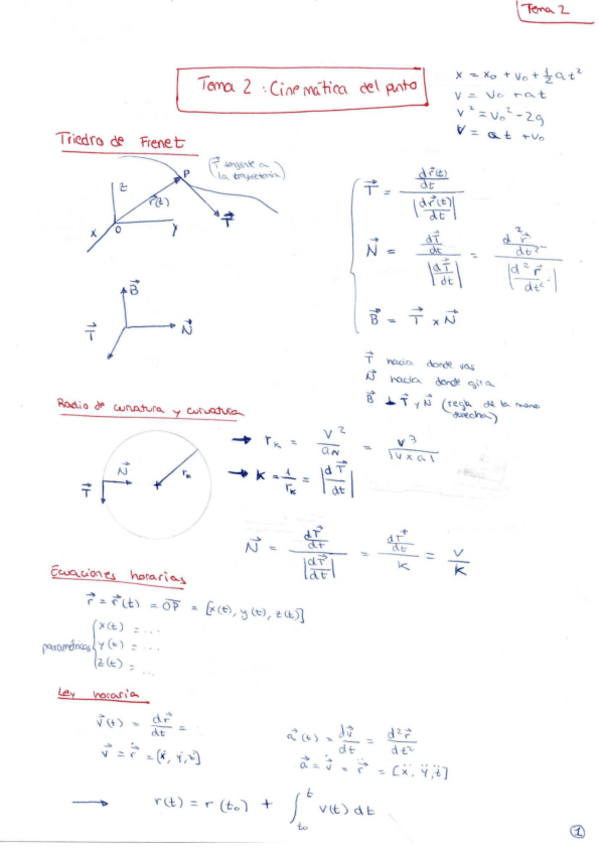 Tema 2
Tema 2: Cinemática del punto
x = x₀ + v₀ + ½ at²
v = v₀ + at
v² = v₀² - 2g
v = at + v₀
Triedro de Frenet
(T⃗ tangente a
la trayectoria)
z
P
r⃗(t)
x
O
y
T⃗
T⃗ = (dr⃗(t)/dt) / |dr⃗(t)/dt|
N⃗ = (dT⃗/dt) / |dT⃗/dt| = (d²r⃗/dt²) / |d²r⃗/dt²|
B⃗ = T⃗ x N⃗
B⃗
T⃗
N⃗
T⃗ hacia donde vas
N⃗ hacia donde gira
B⃗ ⊥ T⃗ y N⃗ (regla de la mano
derecha)
Radio de curvatura y curvatura
N⃗
T⃗
rₖ
→ rₖ = v²/aN = v³/|v x a|
→ K = 1/rₖ = |dT⃗/dt|
N⃗ = (dT⃗/dt) / |dT⃗/dt| = (dT⃗/dt) / K = v/K
Ecuaciones horarias
r⃗ = r⃗(t) = OP = [x(t), y(t), z(t)]
paramétricas { x(t) = ...
y(t) = ...
z(t) = ...
Ley horaria
v⃗(t) = dr⃗/dt =
v⃗ = ṙ⃗ = [ẋ, ẏ, ż]
a⃗(t) = dv⃗/dt = d²r⃗/dt²
a⃗ = v̇⃗ = r̈⃗ = [ẍ, ÿ, z̈]
→ r(t) = r(t₀) + ∫ₜ₀ᵗ v(t) dt
1